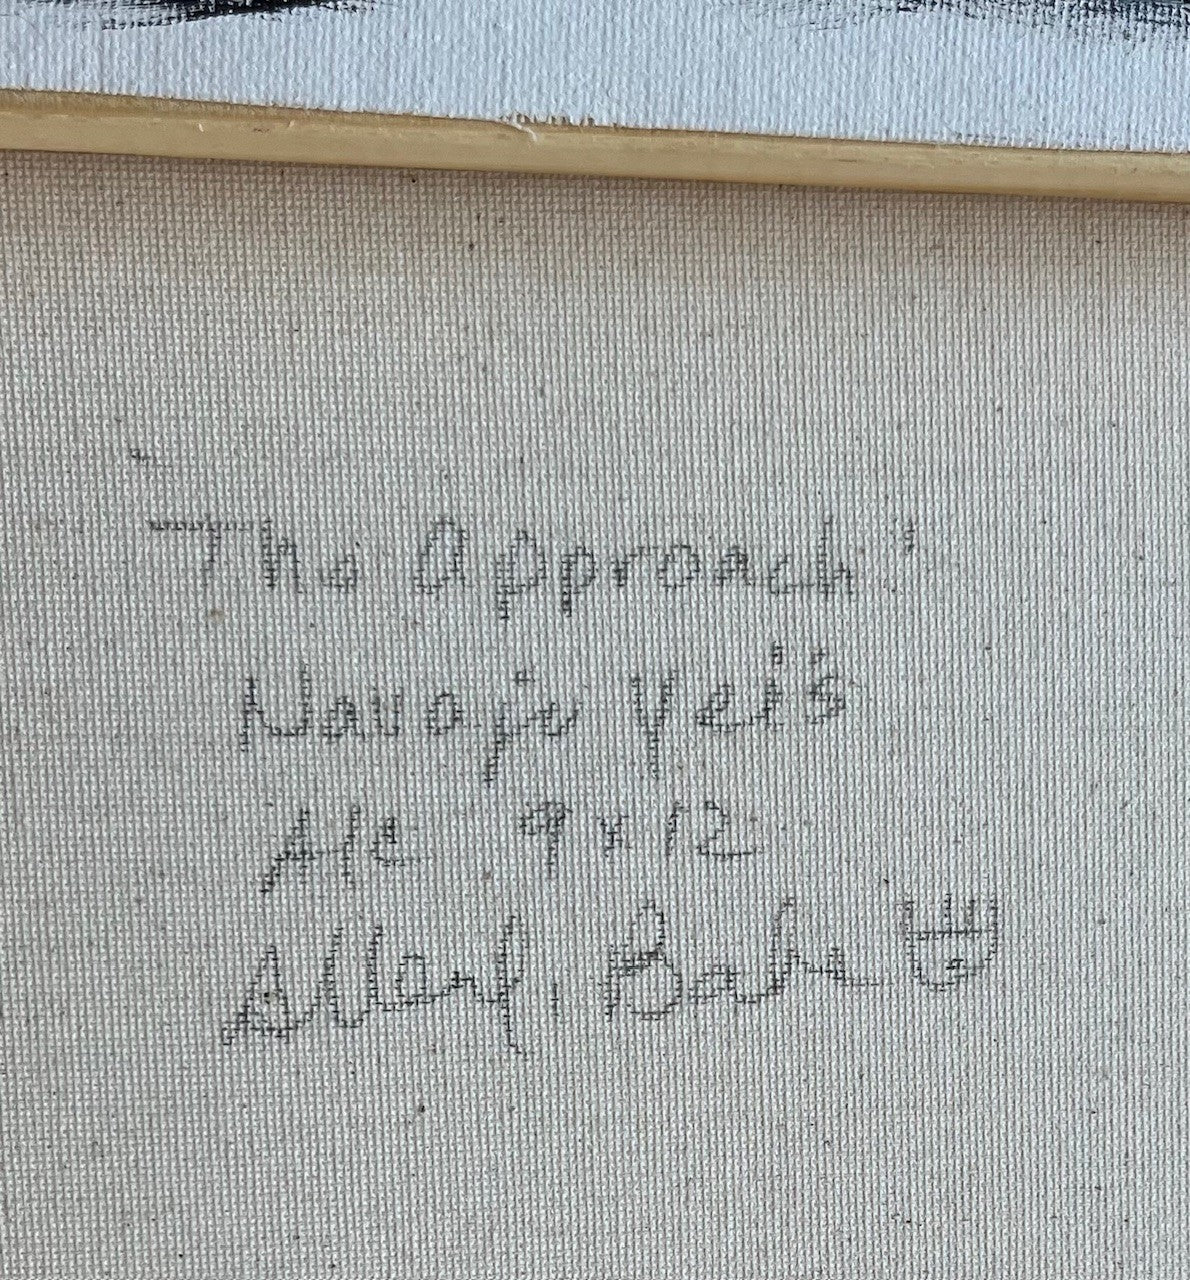 "The Approach"
Navajo Yei's
A/C 9 x 12
Allery. Bahe